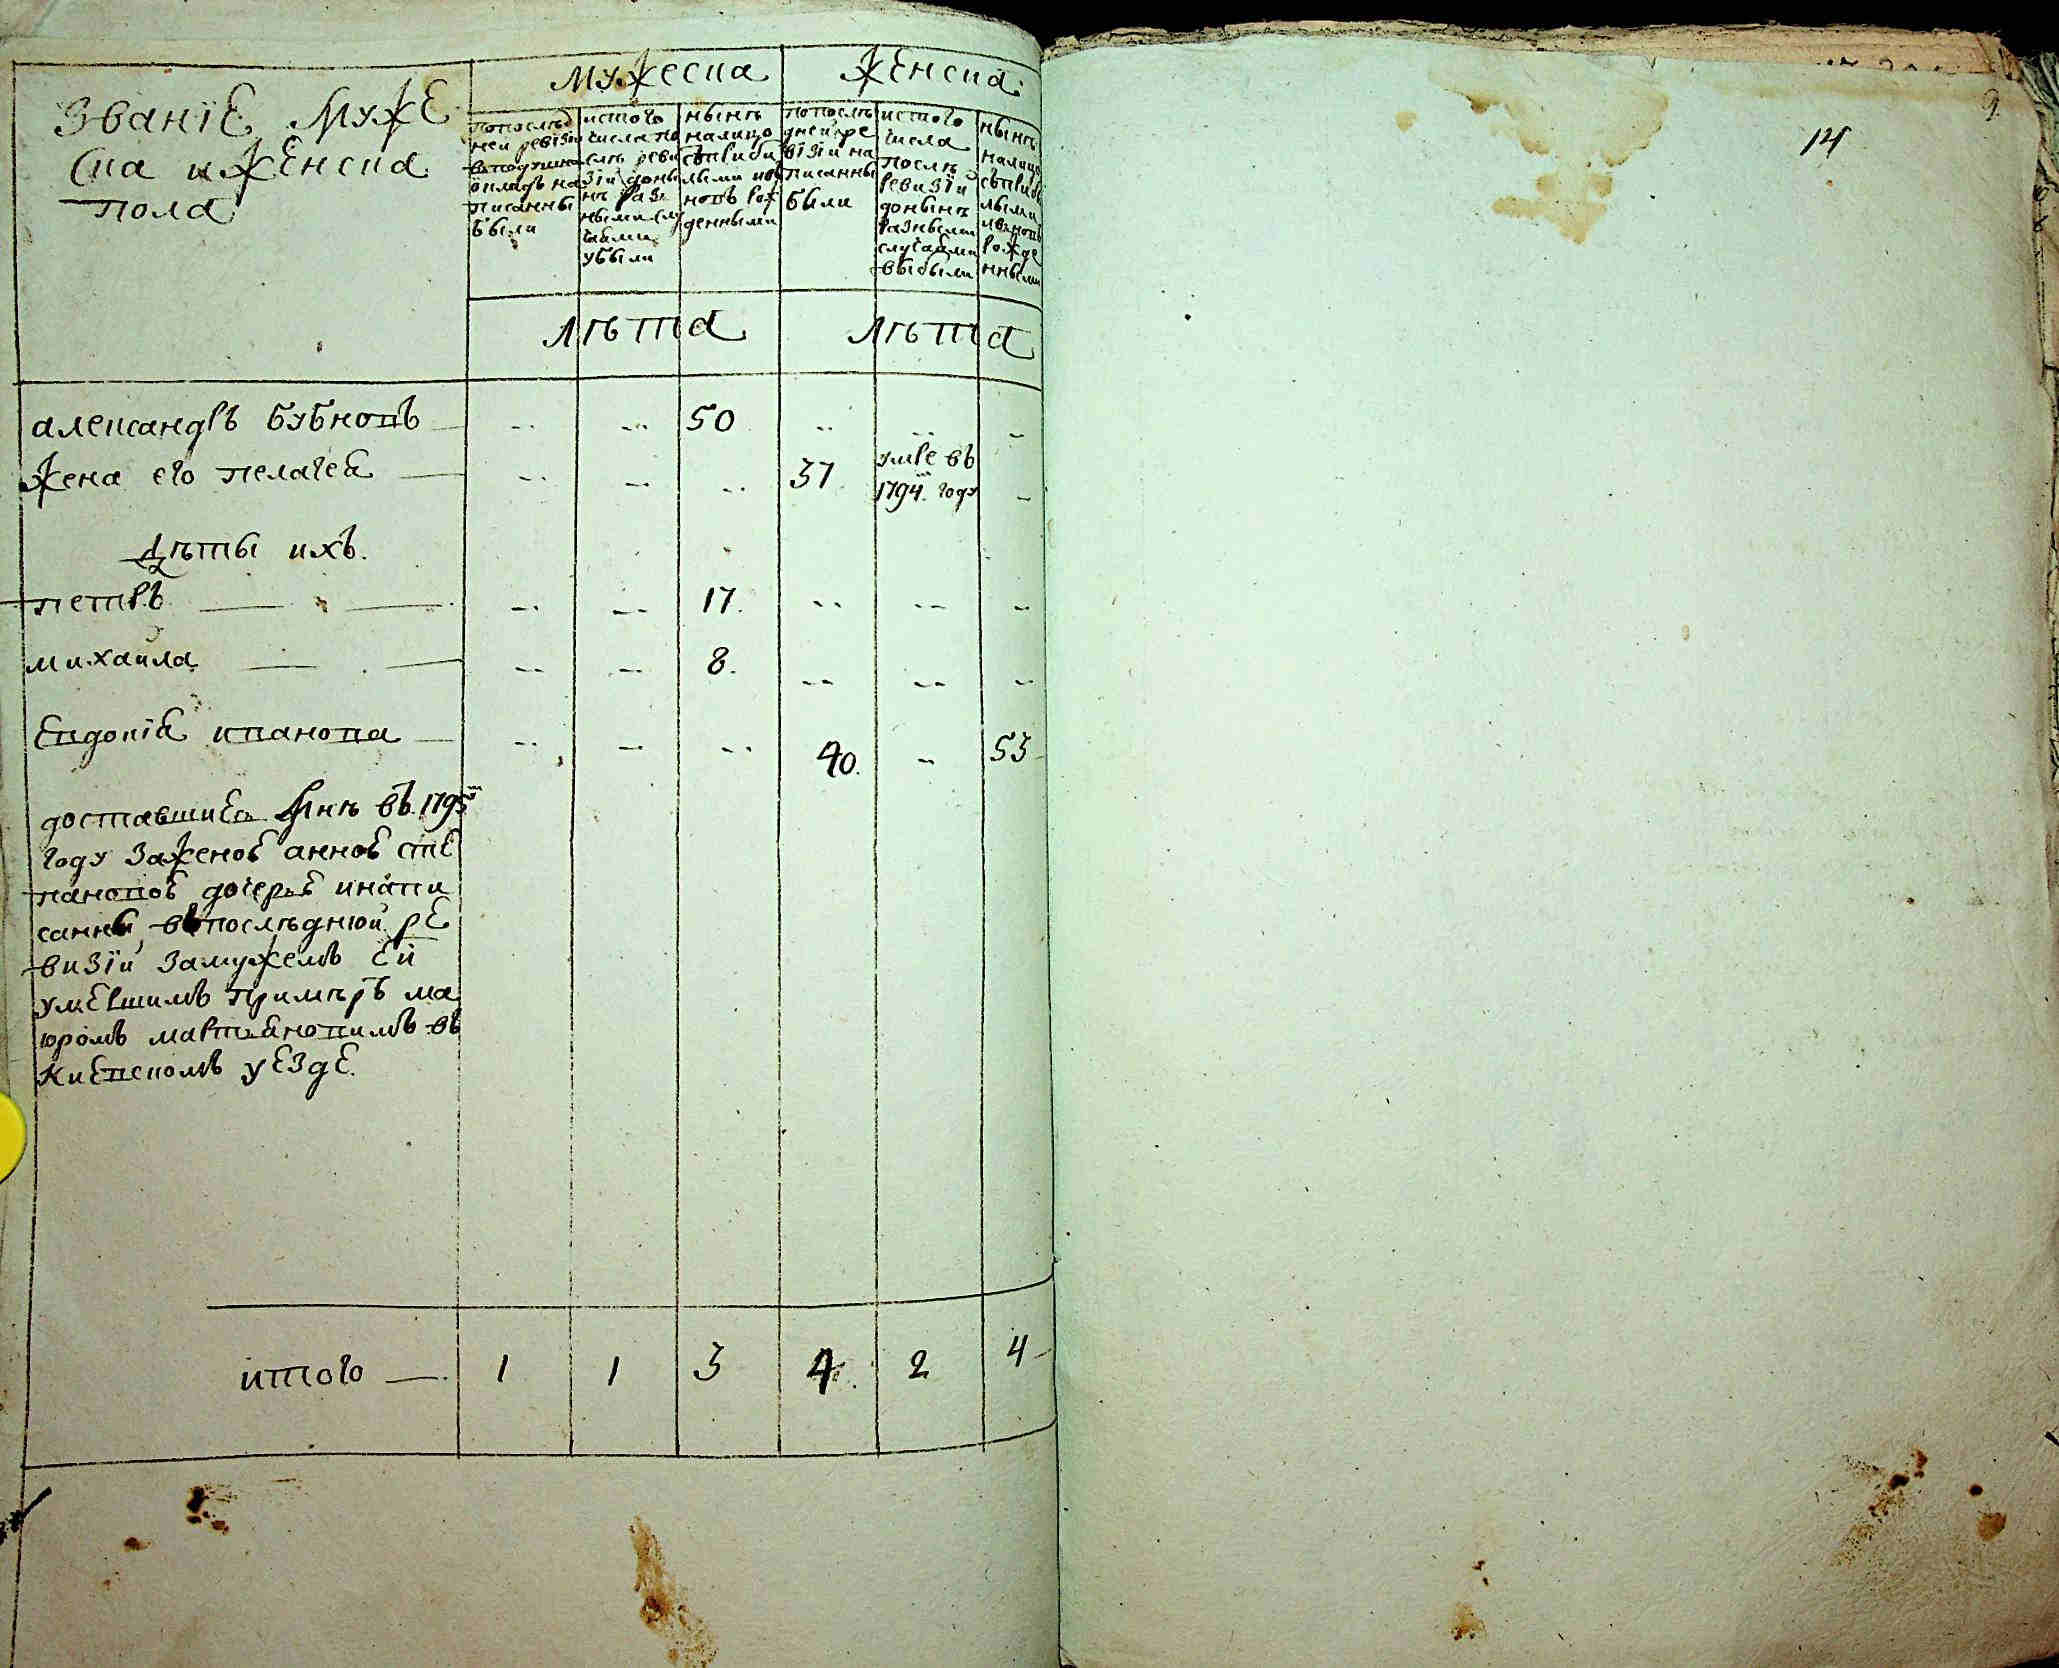 Званїе Муже
ска и женска
пола
Мужеска
Женска
попослѣд
ней ревізіи
вподушно
окладъ на
писанны
были
истого
числа по
слѣ реви
зіи доны
нѣ раз
ными слу
чаями
убыли
нынѣ
налицо
съприбы
лыми ивъ
новъ рож
денными
попослѣ
дней ре
візіи на
писанны
были
истого
числа
послѣ
ревизїи
донынѣ
разными
случаями
выбыли
нынѣ
налицо
съприбы
лыми
ивновъ
рожде
нными
Лѣта
Лѣта
александръ бубновъ
50
жена его пелагея
37
умре въ
1794. году
Дѣты ихъ.
петръ
17.
михайла
8.
Евдокія иванова
40.
53
доставшися Мнѣ въ 1795
году заженою анною сте
пановою дочерью инапи
санны впослѣднюй ре
визїи замужемъ ей
умершимъ примѣръ ма
юромъ мартьяновимъ въ
Киевскомъ уезде.
итого
1
1
3
4.
2
4
14
9